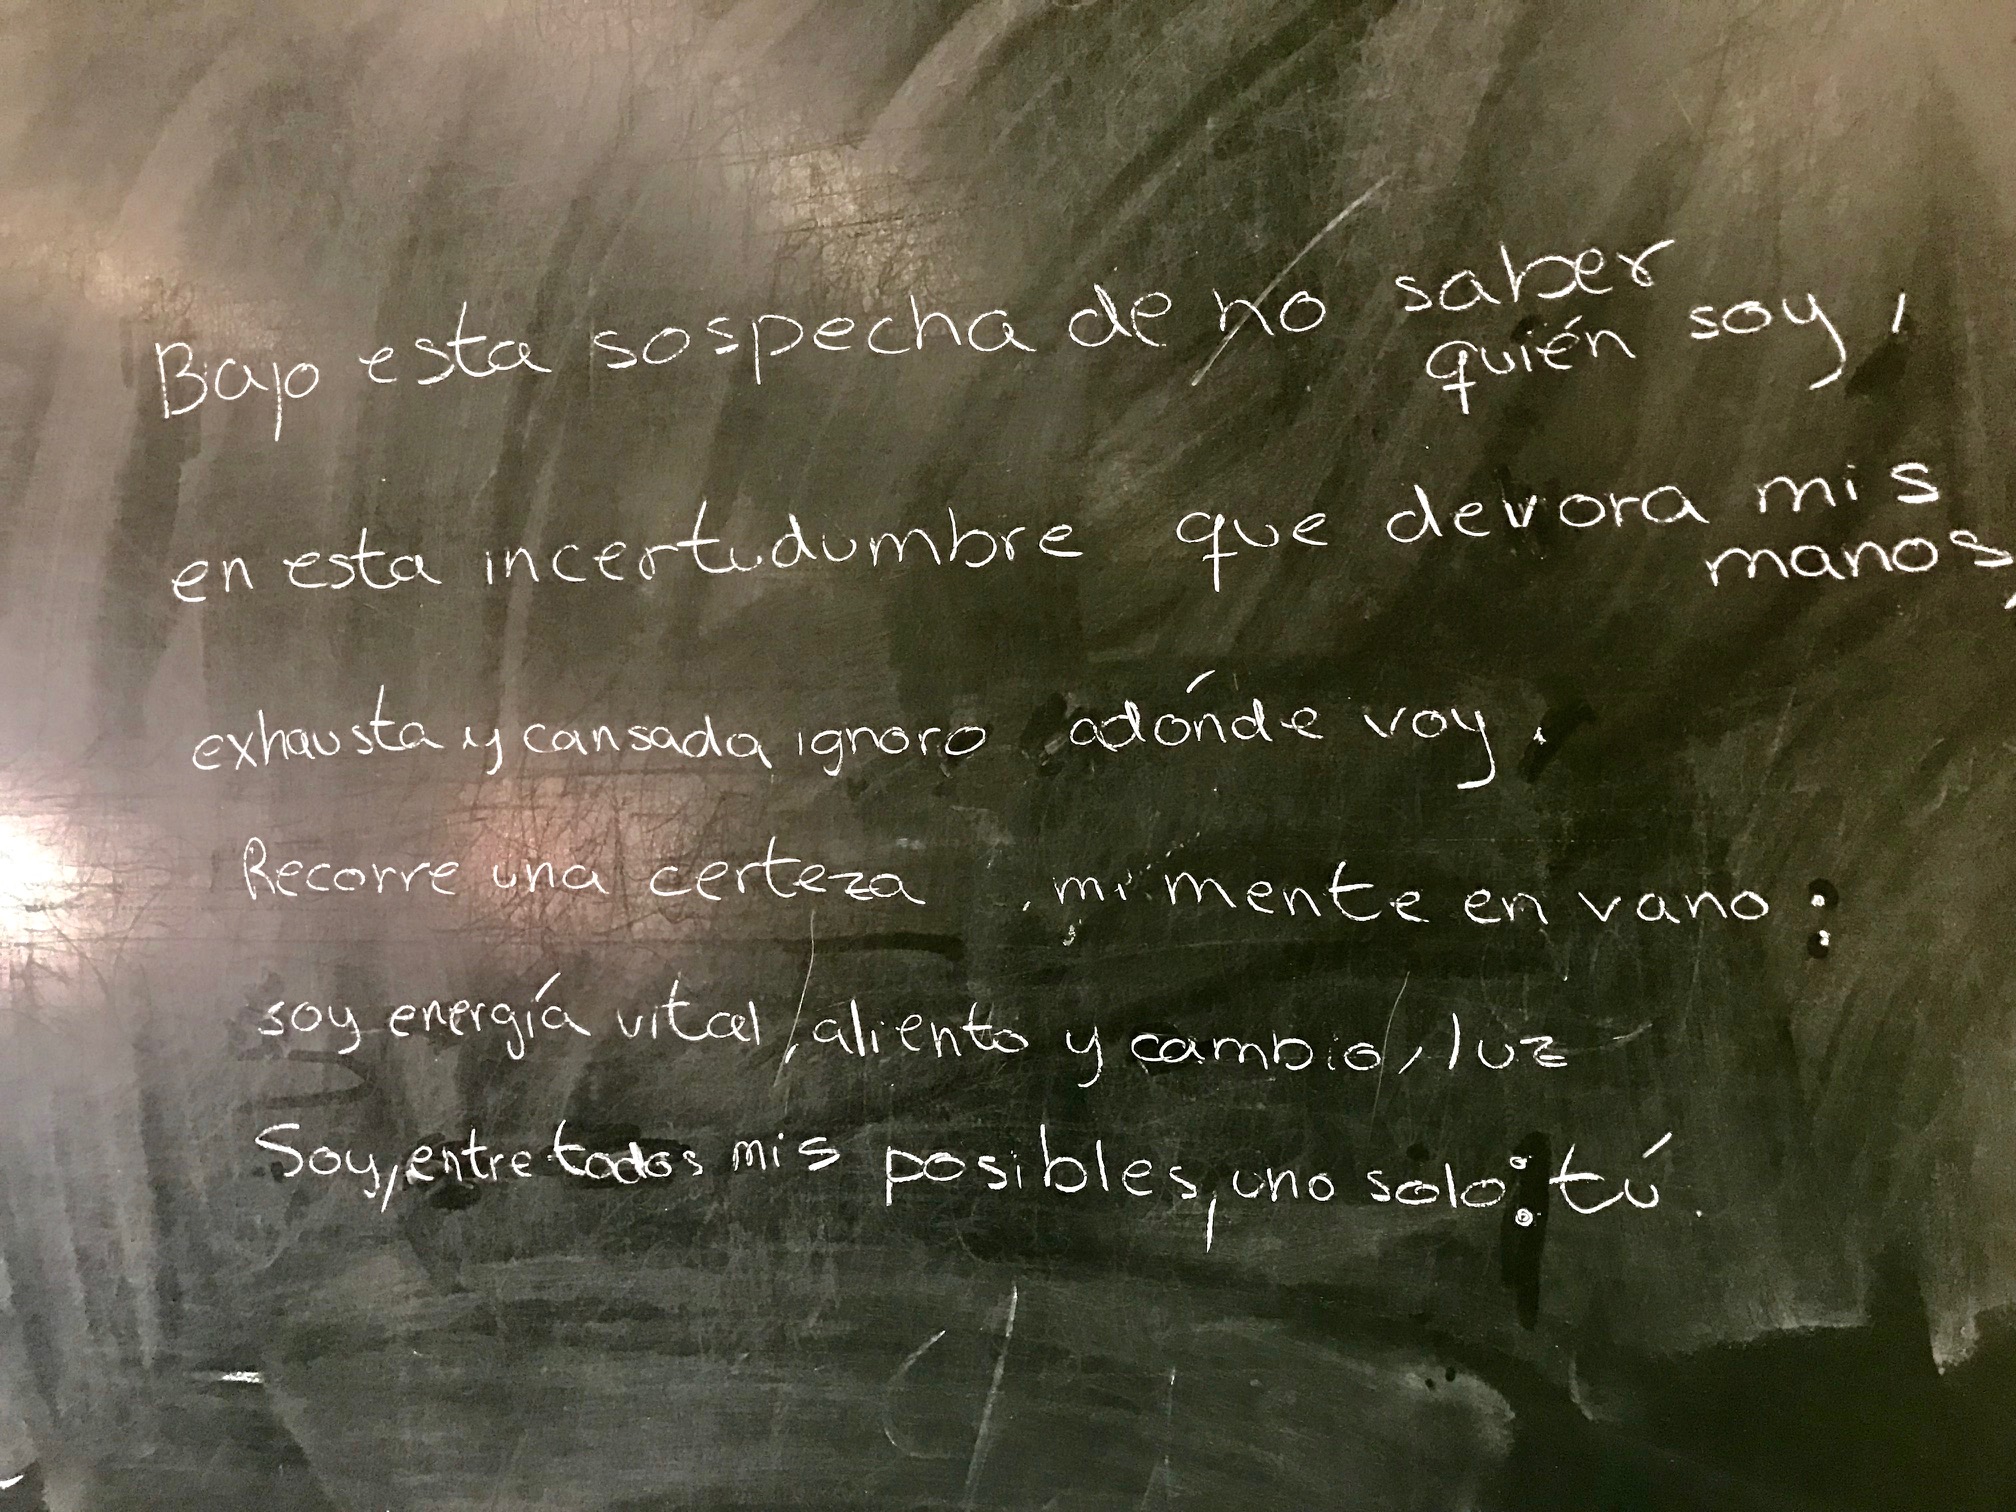 Bajo esta sospecha de no saber
quién soy,
en esta incertudumbre que devora mis
manos,
exhausta y cansada ignoro adónde voy.
Recorre una certeza mi mente en vano:
soy energía vital, aliento y cambio, luz
Soy, entre todos mis posibles, uno solo: tú.